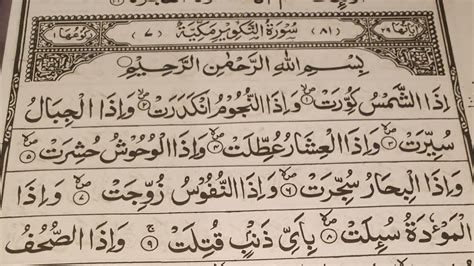 اٰيَاتُهَا ٢٩ (٨١) سُوْرَةُ التَّكْوِيْرِ مَكِّيَّةٌ (٧) رُكُوْعُهَا ١
بِسْمِ اللهِ الرَّحْمٰنِ الرَّحِيْمِ
اِذَا الشَّمْسُ كُوِّرَتْ ۝١ وَاِذَا النُّجُوْمُ انْكَدَرَتْ ۝٢ وَاِذَا الْجِبَالُ
سُيِّرَتْ ۝٣ وَاِذَا الْعِشَارُ عُطِّلَتْ ۝٤ وَاِذَا الْوُحُوْشُ حُشِرَتْ ۝٥
وَاِذَا الْبِحَارُ سُجِّرَتْ ۝٦ وَاِذَا النُّفُوْسُ زُوِّجَتْ ۝٧ وَاِذَا
الْمَوْءٗدَةُ سُىِٕلَتْ ۝٨ بِاَىِّ ذَنْۢبٍ قُتِلَتْ ۝٩ وَاِذَا الصُّحُفُ